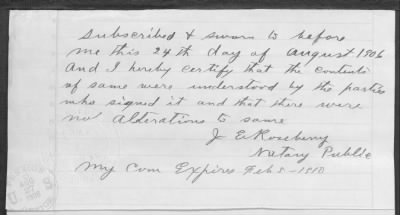 Subscribed & sworn to before
me this 24th day of August 1906
And I hereby certify that the contents
of same were understood by the parties
who signed it and that there were
no alterations to same
J E Roseberry
Notary Public
My Com Expires Feb 8-1910